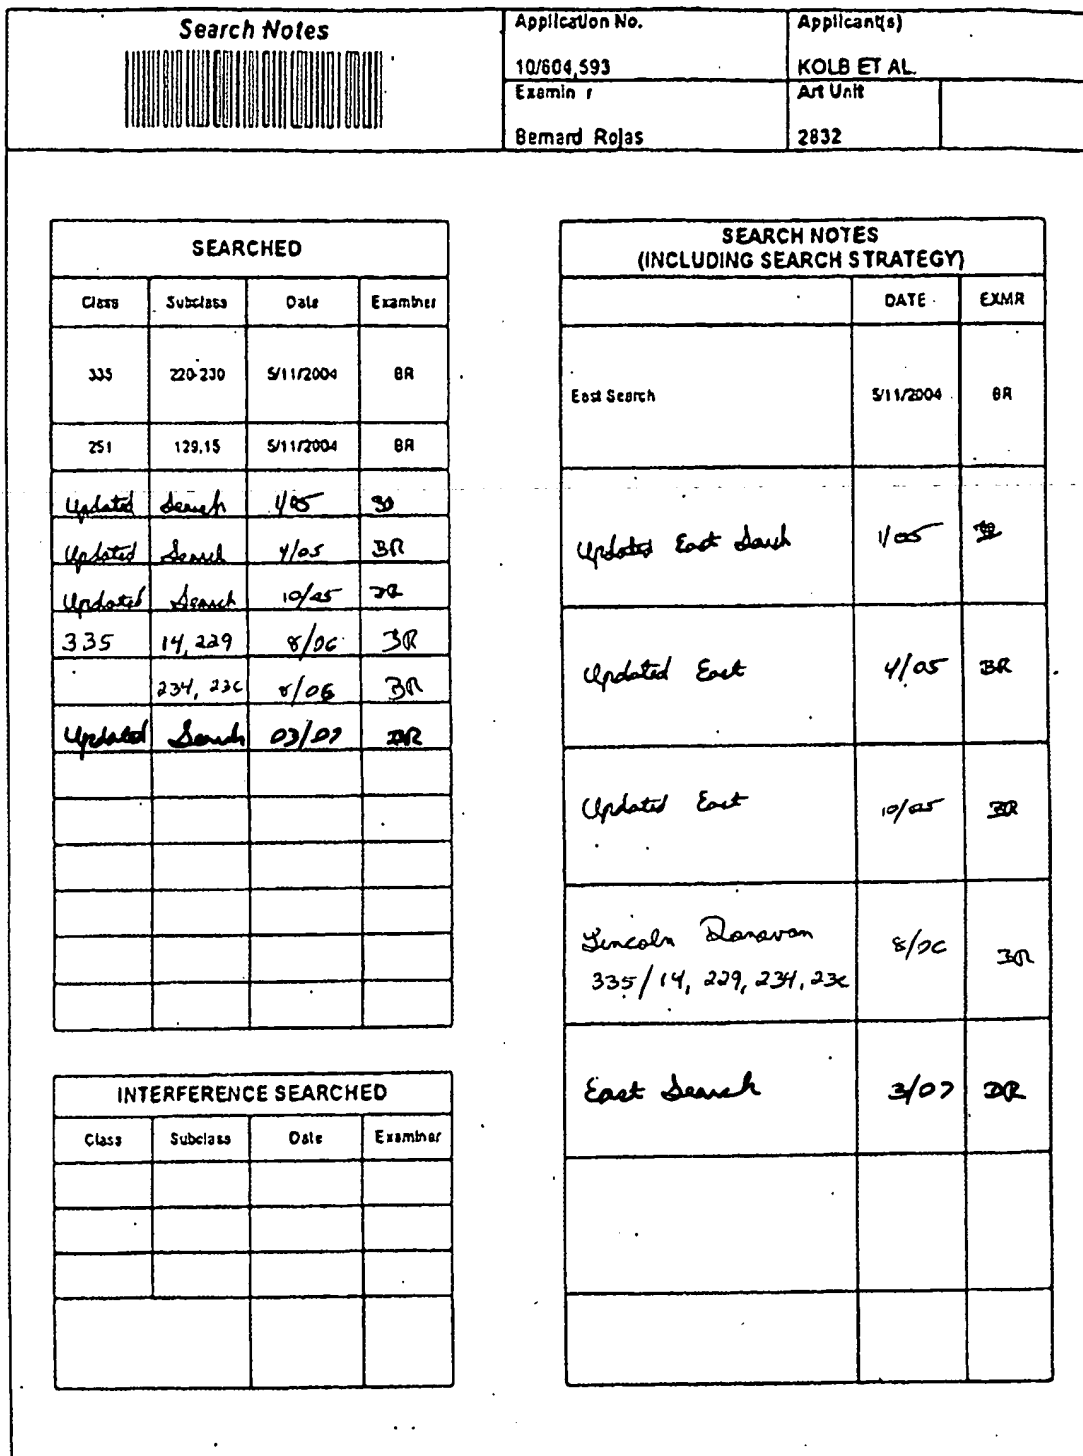 Search Notes
Application No.
Applicant(s)
10/604,593
KOLB ET AL.
Examin r
Art Unit
Bernard Rojas
2832
SEARCHED
Class Subclass Date Examiner
335 220-230 5/11/2004 BR
251 129.15 5/11/2004 BR
Updated Search 1/05 BR
Updated Search 4/05 BR
Updated Search 10/05 BR
335 14, 229 8/06 BR
234, 236 8/06 BR
Updated Search 03/07 BR
INTERFERENCE SEARCHED
Class Subclass Date Examiner
SEARCH NOTES
(INCLUDING SEARCH STRATEGY)
DATE EXMR
East Search 5/11/2004 BR
Updated East Search 1/05 BR
Updated East 4/05 BR
Updated East 10/05 BR
Lincoln Donovan 8/06 BR
335/14, 229, 234, 236
East Search 3/07 BR